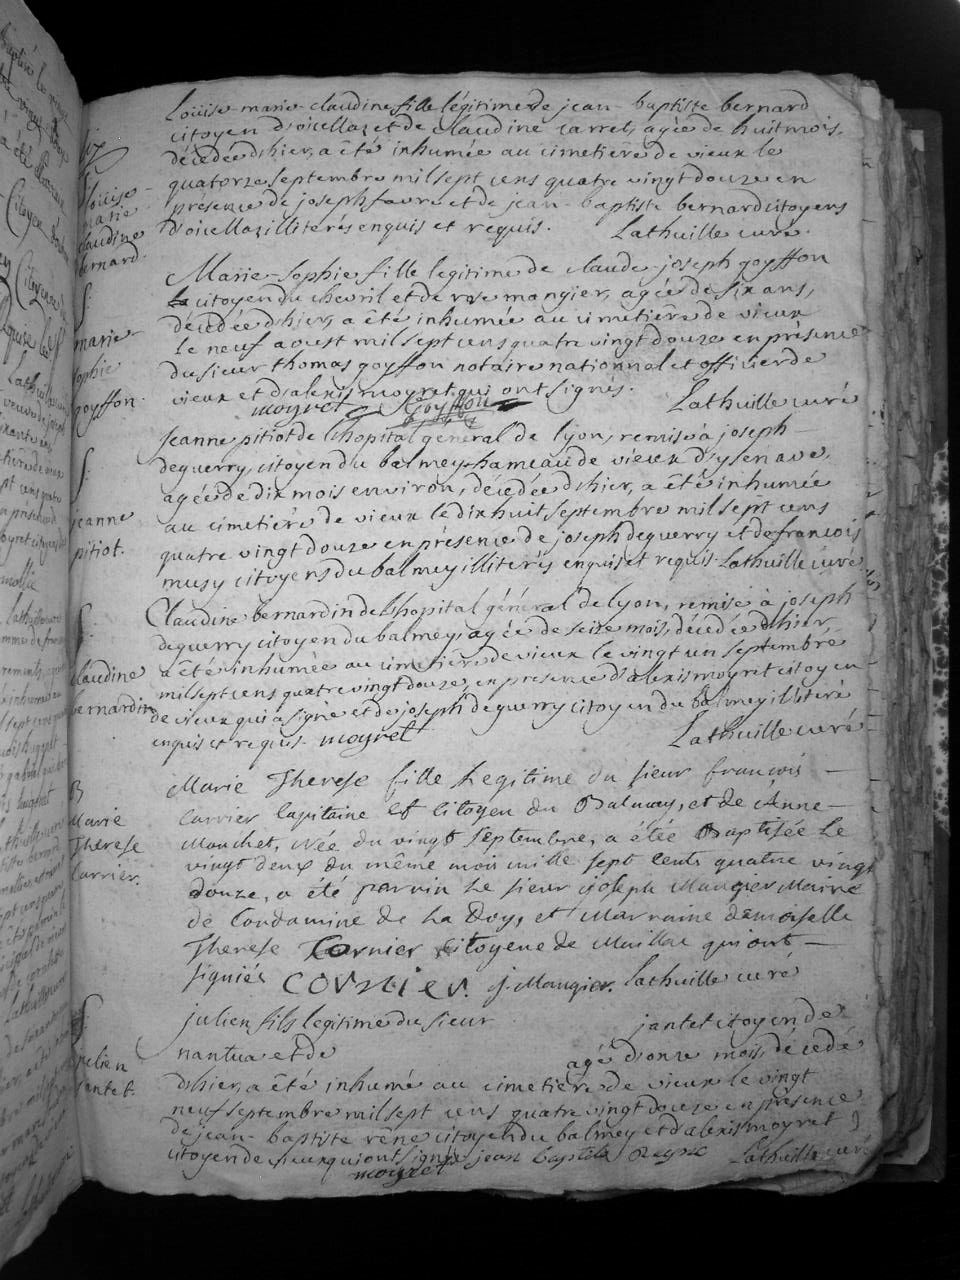 Louise-marie-claudine fille légitime de jean-baptiste bernard
citoyen d'oiellaz et de claudine carret, agée de huit mois,
décedée d'hier, a été inhumée au cimetière de vieux le
quatorze septembre mil sept cens quatre vingt douze en
présence de joseph favre et de jean-baptiste bernard citoyens
d'oiellaz illiterés enquis et requis. Lathuille curé.
louise-
marie-
claudine
bernard.
Marie-Sophie fille legitime de claude-joseph goyffon
citoyen du chevril et de rose mangier, agée de six ans,
décedée d'hier, a été inhumée au cimetière de vieux
le neuf aoust mil sept cens quatre vingt douze en présence
du sieur thomas goyffon notaire nationnel et officier de
vieux et d'alexis moyret qui ont signés.
moyret Goyffon Lathuille curé
S.
marie
sophie
goyffon.
Jeanne pitiot de l'hopital général de lyon, remise à joseph-
deguerry, citoyen du balmey hameau de vieux d'ysenave,
agée de dix mois environ, décedée d'hier, a été inhumée
au cimetière de vieux le dix huit septembre mil sept cens
quatre vingt douze en présence de joseph deguerry et de francois
musy citoyens du balmey illiterés enquis et requis. Lathuille curé
S.
jeanne
pitiot.
Claudine bernardin de l'hopital général de lyon, remise à joseph
deguerry citoyen du balmey, agée de seize mois, décedée d'hier
a été inhumée au cimetière de vieux le vingt un septembre
mil sept cens quatre vingt douze, en presence d'alexis moyret citoyen
de vieux qui a signé et de joseph deguerry citoyen du balmey illiteré
enquis et requis. moyret Lathuille curé
S.
claudine
bernardin
Marie Therese fille Legitime du sieur francois-
Carrier Capitaine et Citoyen du Balmay, et de Anne-
Mouchet, née du vingt septembre, a étée Baptisée Le
vingt deux du même mois mille sept cents quatre vingt
douze, a été parrin Le sieur joseph Maugier Maire
de Condamine de La Doy, et Marraine demoiselle
Therese Cornier citoyene de Maillac qui ont-
signiés cornier. j. Maugier. Lathuille curé
B
Marie
Therese
Carrier.
julien fils legitime du sieur jantet citoyen de
nantua et de agé d'onze mois, décedé
d'hier, a été inhumé au cimetière de vieux le vingt
neuf septembre mil sept cens quatre vingt douze en présence
de jean-baptiste rêne citoyen du balmey et d'alexis moyret
citoyen de vieux qui ont signés jean baptiste Lathuille curé
moyret
S.
julien
jantet.